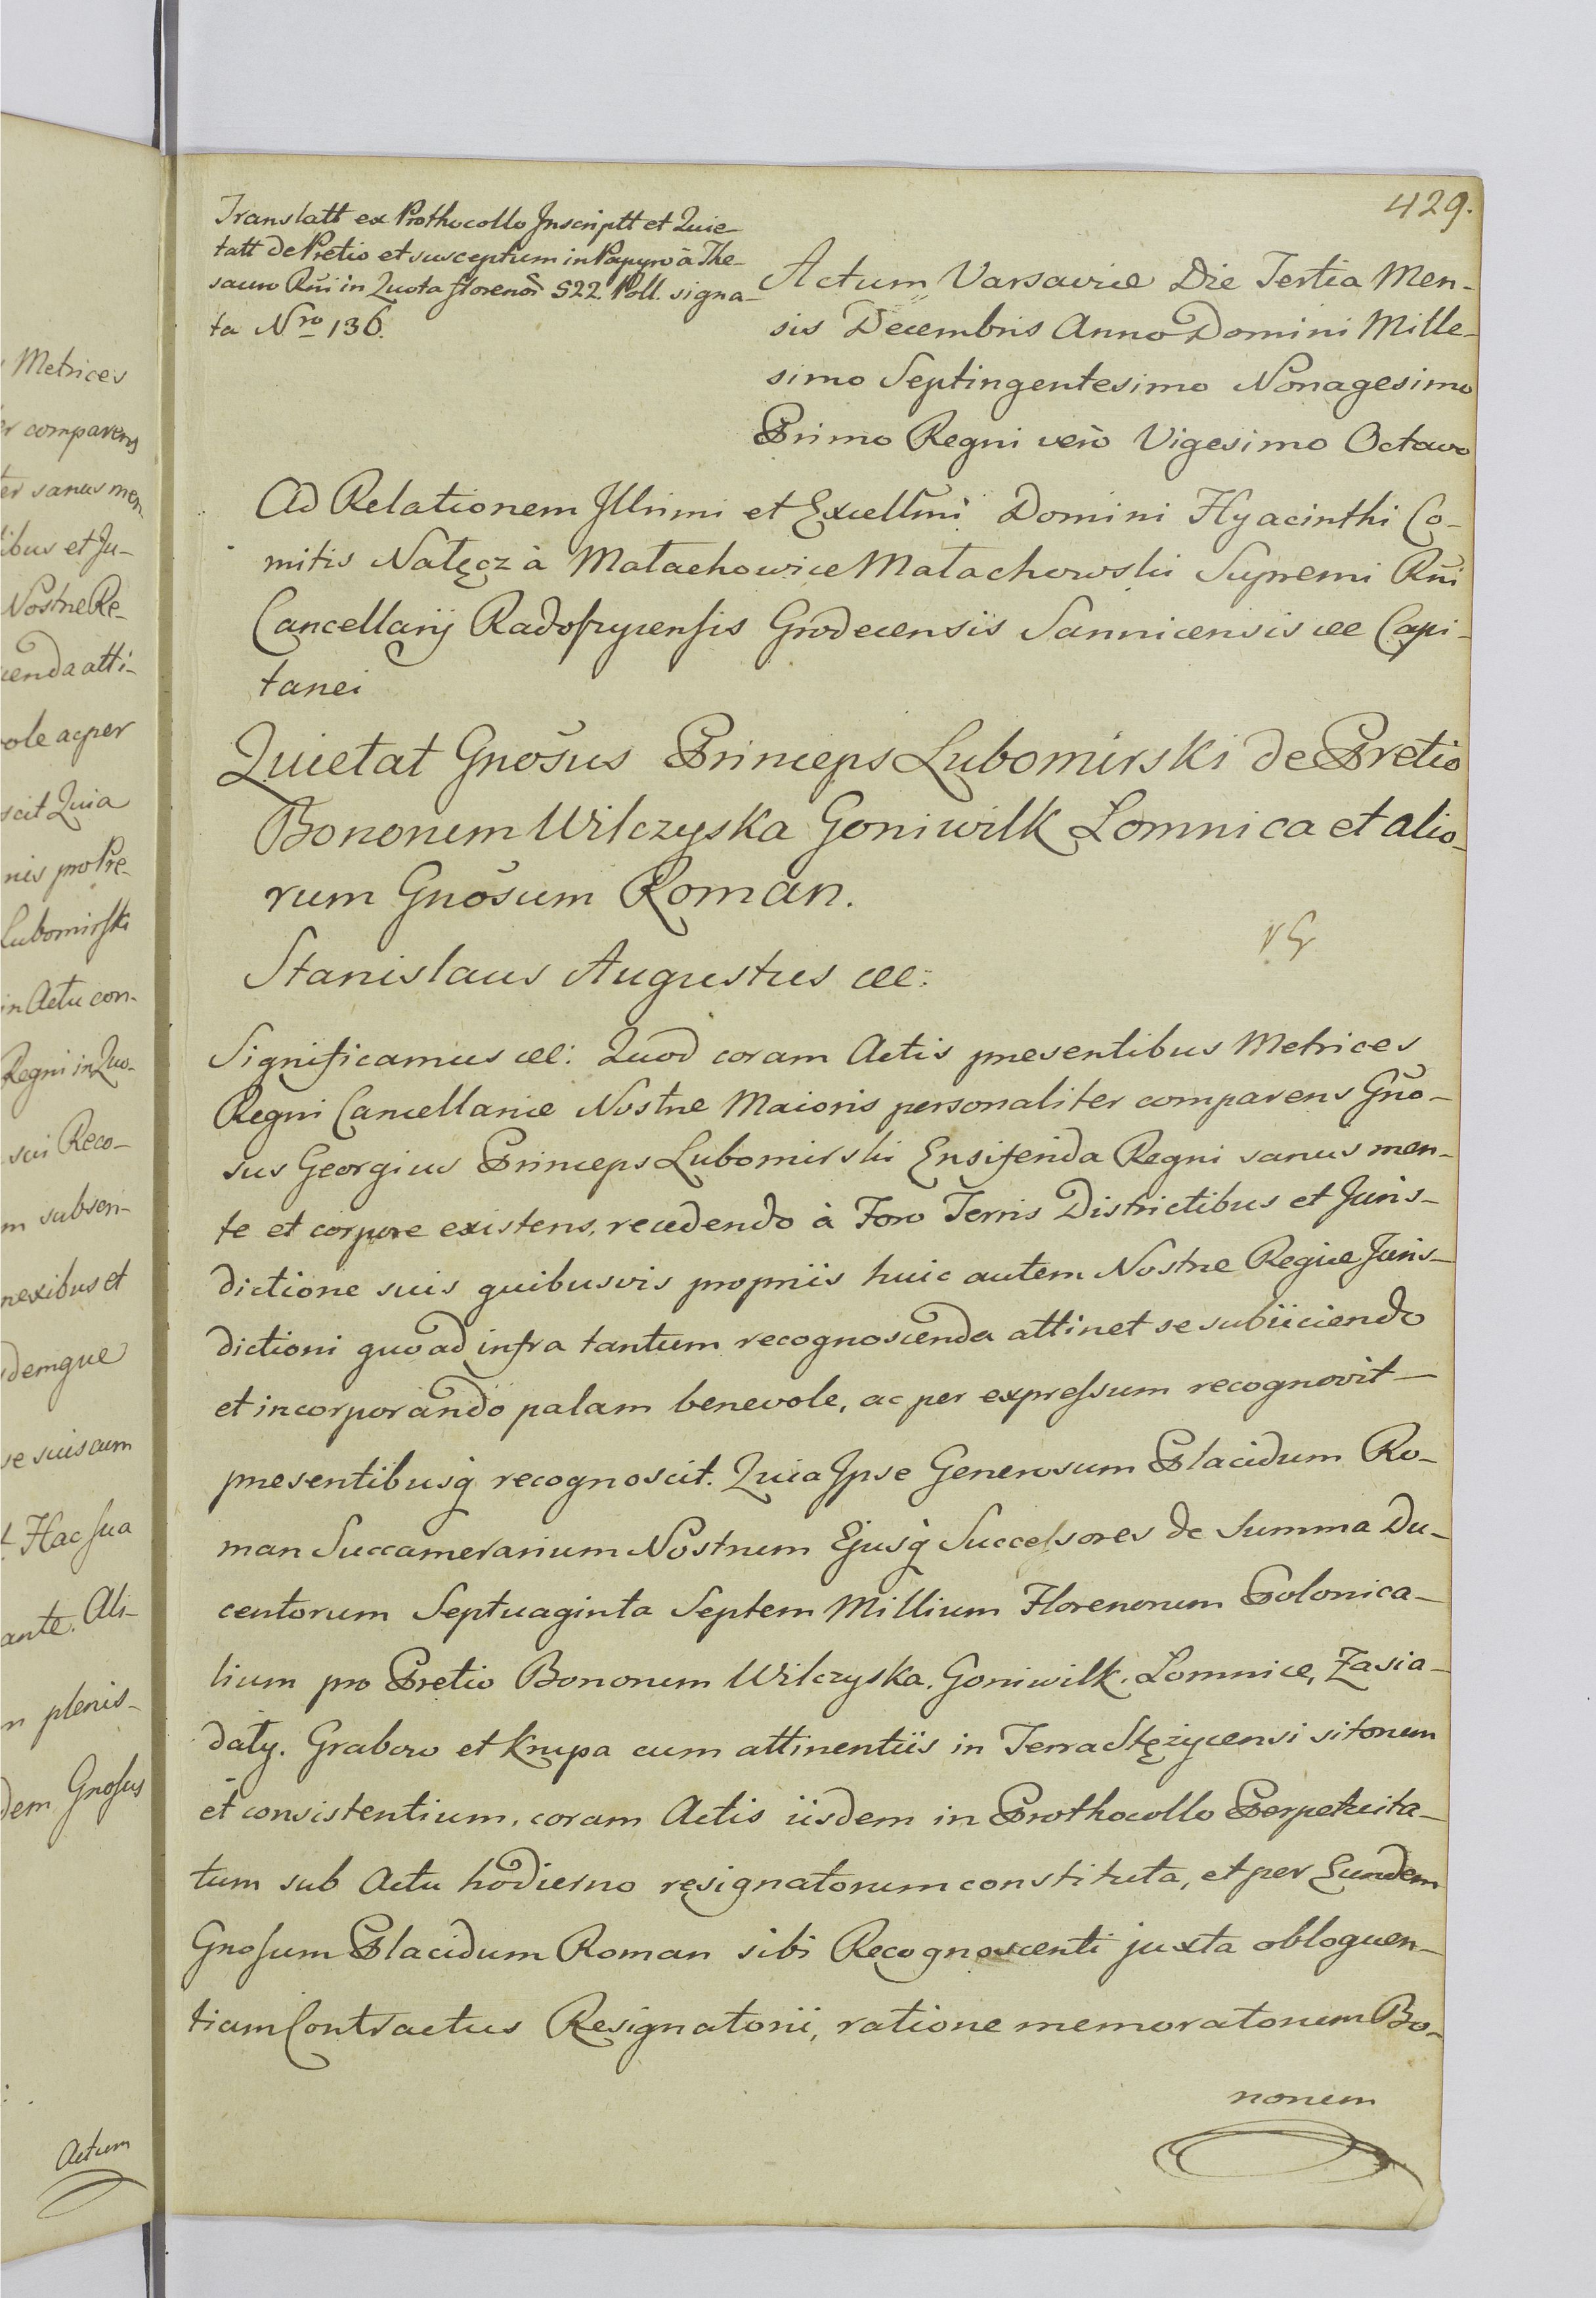 Metrices
er comparens
ter sanus men
libus et Ju-
Nostræ Re-
cenda atti-
vole ac per
scit Quia
nis pro Pre-
Lubomirski
in Actu con-
Regni in Quo-
sui Reco-
m subsen-
nexibus et
demque
se suis cum
t. Hac sua
ante. Ali-
n plenis-
dem Gnosus
Actum
429.
Translatt ex Prothocollo Inscriptt et Quie-
tatt de Pretio et susceptum in Papyro à The-
sauro Rñi in Quota florenoȓ 522 Poll. signa-
ta Nro 136.
Actum Varsaviæ Die Tertia Men-
sis Decembris Anno Domini Mille-
simo Septingentesimo Nonagesimo
Primo Regni verò Vigesimo Octavo
Ad Relationem Illr̃imi et Excellm̃i Domini Hyacinthi Co-
mitis Nałęcz à Małachowice Małachowski Supremi Rñi
Cancellarij Radoszycensis Grodecensis Sannicensis &c Capi-
tanei
Quietat Gnõsus Princeps Lubomirski de Pretio
Bonorum Wilczyska Goniwilk Łomnica et alio-
rum Gnõsum Roman.
Stanislaus Augustus &c:
Significamus &c: Quod coram Actis præsentibus Metrices
Regni Cancellariæ Nostræ Maioris personaliter comparens Gño-
sus Georgius Princeps Lubomirski Ensiferida Regni sanus men-
te et corpore existens, recedendo à Foro Terris Districtibus et Juris-
dictione suis quibusvis propriis huic autem Nostræ Regiæ Juris-
dictioni quoad infra tantum recognoscenda attinet se subiiciendo
et incorporando palam benevole, ac per expressum recognovit-
præsentibusq̃ recognoscit. Quia Ipse Generosum Placidum Ro-
man Succamerarium Nostrum Ejusq̃ Successores de Summa Du-
centorum Septuaginta Septem Millium Florenorum Polonica-
lium pro Pretio Bonorum Wilczyska, Goniwilk, Łomnice, Zasia-
dały. Grabow et Krupa cum attinentiis in Terra Stężycensi sitorum
et consistentium, coram Actis iisdem in Prothocollo Perpetuita-
tum sub Actu hodierno resignatorum constituta, et per Eundem
Gnosum Placidum Roman sibi Recognoscenti juxta obloquen-
tiam Contractus Resignatorii, ratione memoratorum Bo-
norum